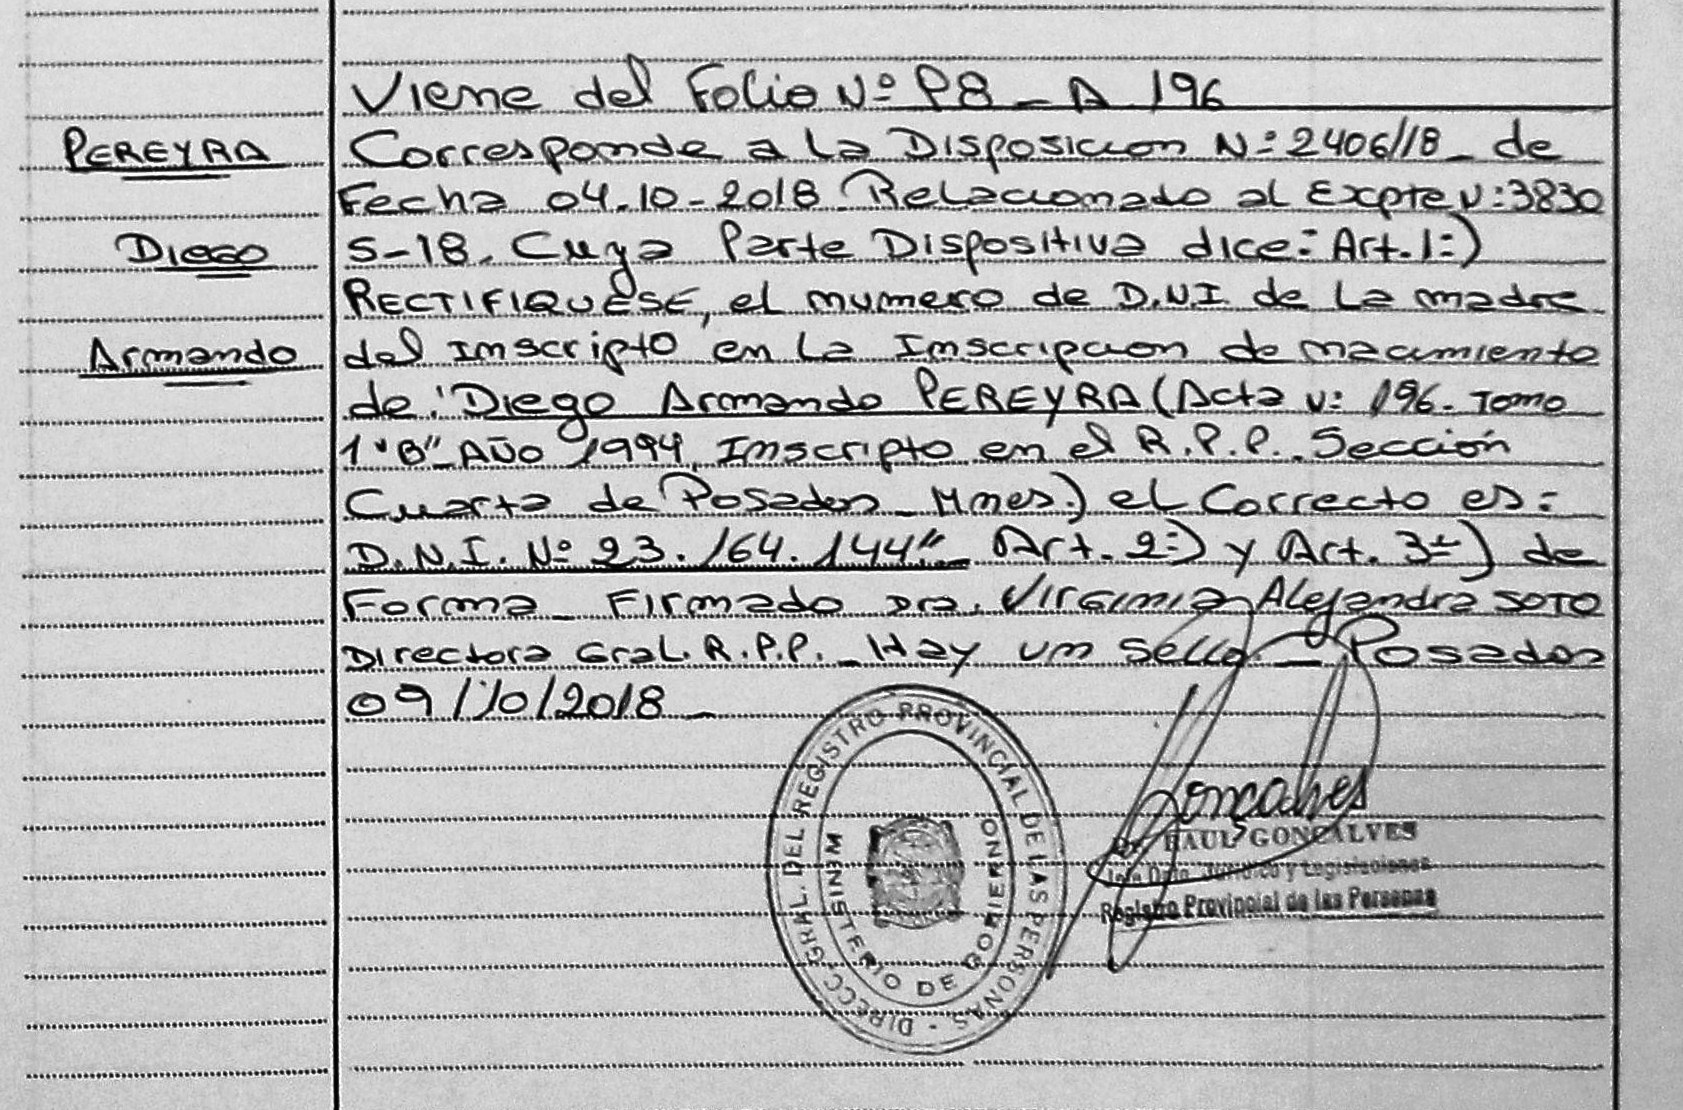 Viene del Folio Nº P8 - A 196
PEREYRA
Corresponde a la Disposicion Nº 2406/18 - de
Fecha 04-10-2018 Relacionado al Expte Nº 3830
Diego
S-18. Cuya Parte Dispositiva dice: Art. 1º)
RECTIFIQUESE, el numero de D.N.I. de la madre
Armando
del Inscripto en la Inscripcion de nacimiento
de: "Diego Armando PEREYRA (Acta Nº 196. Tomo
1 "B" - AÑO 1994, Inscripto en el R.P.P. Sección
Cuarta de Posadas - Mnes.) el Correcto es:
D.N.I. Nº 23.164.144" - Art. 2º) y Art. 3º) de
Forma - Firmado Dra. Virginia Alejandra SOTO
Directora Gral. R.P.P. - Hay un sello - Posadas
09/10/2018 -
DIRECC. GRAL. DEL REGISTRO PROVINCIAL DE LAS PERSONAS -
MINISTERIO DE GOBIERNO
Goncalves
RAUL GONCALVES
Jefe Dpto. Jurídico y Legislaciones
Registro Provincial de las Personas